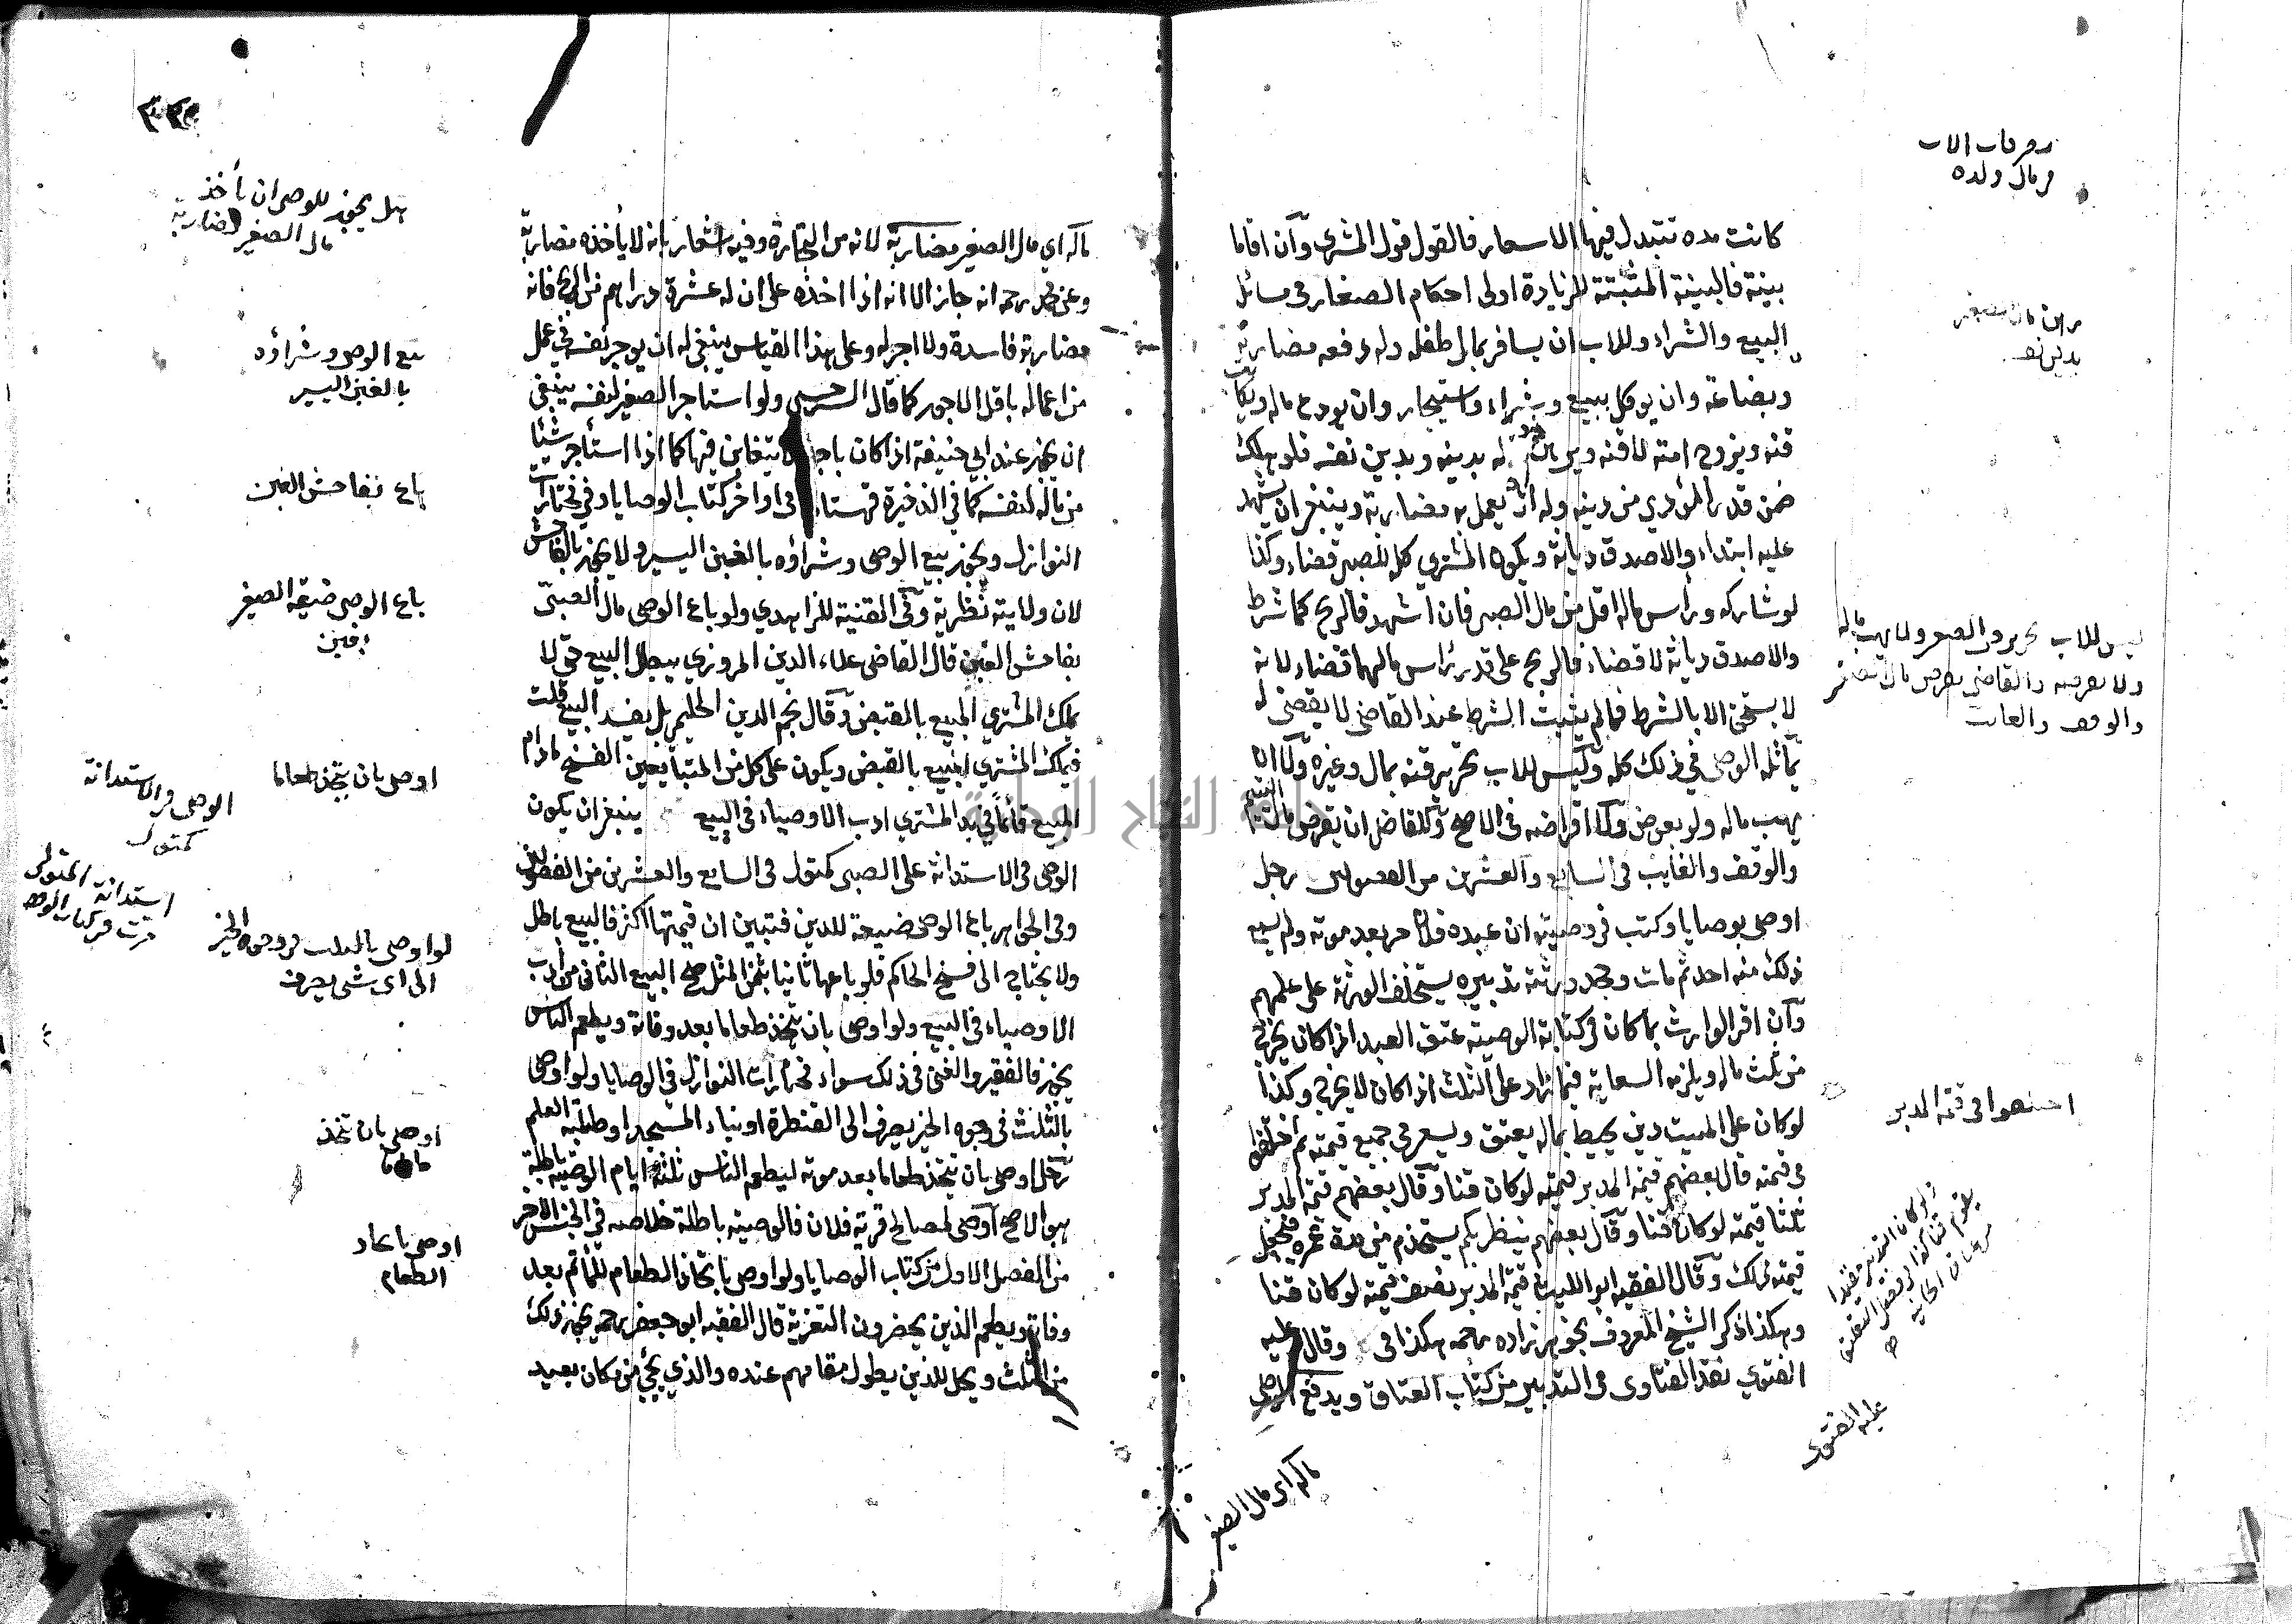 كانت مده تتبدل فيها الاسعار فالقول قول المشتري وان اقاما
بينة فالبينة المثبتة للزيادة اولى احكام الصغار في مسائل
البيع والشراء وللاب ان يسافر بمال طفله وله دفعه مضاربة
وبضاعة وان يوكل ببيع وشراء واستيجار وان يودع ماله ويكاتب
قنه ويزوج امته لا قنه ويرهن ماله بدينه وبدين نفسه فلو هلك
ضمن قدر المؤدي من دينه وله ان يعمل به مضاربة وينبغي ان يشهد
عليه ابتداء والا صدق ديانة ويكون المشتري كله للصبي قضاء وكذا
لو شاركه ورأس ماله اقل من مال الصبي فان اشهد فالربح كما شرط
والا صدق ديانة لا قضاء فالربح على قدر رأس مالهما قضاء لانه
لا يستحق الا بالشرط فما لم يثبت الشرط عند القاضي لا يقضى له
يماثله الوصي في ذلك كله وليس للاب تحرير قنه بمال وغيره ولا ان
يهب ماله ولو بعوض ولا اقراضه في الاصح وللقاضي ان يقرض مال اليتيم
والوقف والغايب في السابع والعشرين من الفصولين رجل
اوصى بوصايا وكتب في وصيته ان عبده فلانا حر بعد موته ولم يسمع
ذلك منه احد ثم مات وجحد ورثته تدبيره يستحلف الورثة على علمهم
وان اقر الوارث بما كان في كتابة الوصية عتق العبد اذا كان يخرج
من ثلث ماله ويلزمه السعاية فيما زاد على الثلث اذا كان لا يخرج وكذا
لو كان على الميت دين يحيط بماله يعتق ويسعى في جميع قيمته ثم اختلفوا
في قيمته قال بعضهم قيمة المدبر قيمته لو كان قنا وقال بعضهم قيمة المدبر
ثلثا قيمته لو كان قنا وقال بعضهم ينظر بكم يستخدم من مدة عمره فيجعل
قيمته ذلك وقال الفقيه ابو الليث قيمة المدبر نصف قيمته لو كان قنا
وهكذا ذكر الشيخ المعروف بخواهر زاده رحمه هكذا في وقال عليه
الفتوي نقد الفتاوى في التدبير من كتاب العتاق ويدفع الوصي
ماله اي مال الصغير
تصرفات الاب
في مال ولده
ليس للاب تحرير قن الصغير ولا يهب ماله
ولا يقرضه والقاضي يقرض مال الصغير
والوقف والغائب
اختلفوا في قيمة المدبر
عليه الفتوى
ماله اي مال الصغير مضاربة لانه من التجارة وفيه اشعار بانه لا يأخذه مضاربة
وعن محمد رحمه انه جائز الا انه اذا اخذه على ان له عشرة دراهم من الربح فانه
مضاربة فاسدة ولا اجر له وعلى هذا القياس ينبغي له ان يوجر نفسه في عمل
من اعماله باقل الاجور كما قال السرخسي ولو استاجر الصغير لنفسه ينبغي
ان يجوز عند ابي حنيفة اذا كان باجر لا يتغابن فيها كما اذا استأجر شيئا
من ماله لنفسه كما في الذخيرة قهستاني في اواخر كتاب الوصايا وفي مختارات
النوازل ويجوز بيع الوصي وشراؤه بالغبن اليسير ولا يجوز بالفاحش
لان ولايته نظرية وفي القنية للزاهدي ولو باع الوصي مال الصبي
بفاحش الغبن قال القاضي علاء الدين المروزي يبطل البيع حتى لا
يملك المشتري المبيع بالقبض وقال نجم الدين الحليمي بل يفسد البيع قلت
فيملك المشتري المبيع بالقبض ويكون على كل من المتبايعين الفسخ ما دام
المبيع قائما في يد المشتري ادب الاوصياء في البيع ينبغي ان يكون
الوصي في الاستدانة على الصبي كمتول في السابع والعشرين من الفصولين
وفي الجواهر باع الوصي ضيعة للدين فتبين ان قيمتها اكثر فالبيع باطل
ولا يحتاج الى فسخ الحاكم فلو باعها ثانيا بثمن المثل صح البيع الثاني من ادب
الاوصياء في البيع ولو اوصى بان يتخذ طعاما بعد وفاته ويطعم الناس
يجوز فالفقير والغني في ذلك سواء مختارات النوازل في الوصايا ولو اوصى
بالثلث في وجوه الخير يصرف الى القنطرة او بناء المسجد او طلبة العلم
رجل اوصى بان يتخذ طعاما بعد موته ليطعم الناس ثلثة ايام الوصية باطلة
هو الاصح اوصى لمصالح قرية فلان فالوصية باطلة خلاصه في الجنس الاخر
من الفصل الاول من كتاب الوصايا ولو اوصى باتخاذ الطعام للمأتم بعد
وفاته ويطعم الذين يحضرون التعزية قال الفقيه ابو جعفر رحمه يجوز ذلك
من الثلث ويحل للذين يطول مقامهم عنده والذي يجئ من مكان بعيد
هل يجوز للوصي ان يأخذ
مال الصغير مضاربة
بيع الوصي وشراؤه
بالغبن اليسير
باع بفاحش الغبن
باع الوصي ضيعة الصغير
بغبن
اوصى بان يتخذ طعاما
الوصي في الاستدانة
كمتول
استدانة المتولي
مرت في كتاب الوقف
لو اوصى بالثلث في وجوه الخير
الى اي شئ يصرف
اوصى بان يتخذ
طعاما
اوصى باتخاذ
الطعام